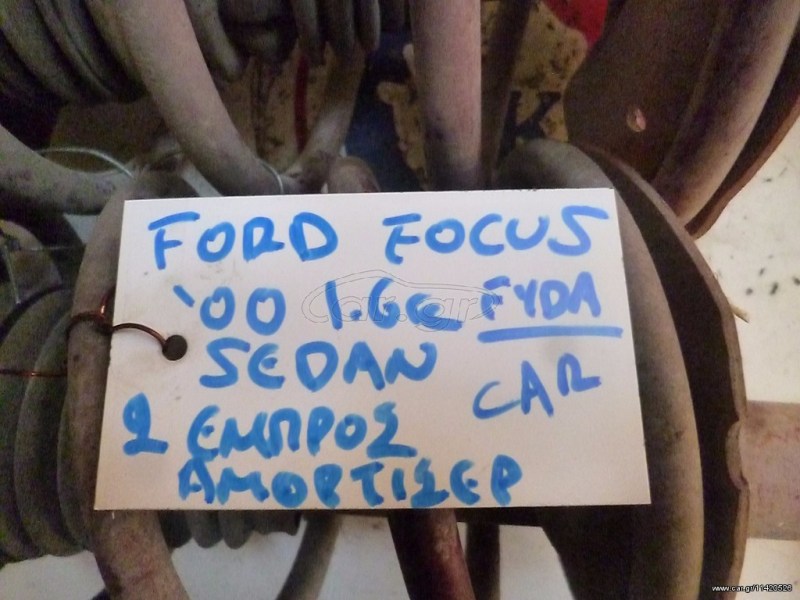 FORD FOCUS
'00 1.6cc FYDA
SEDAN CAR
2 ΕΜΠΡΟΣ
ΑΜΟΡΤΙΣΕΡ
car.gr
www.car.gr/11420526